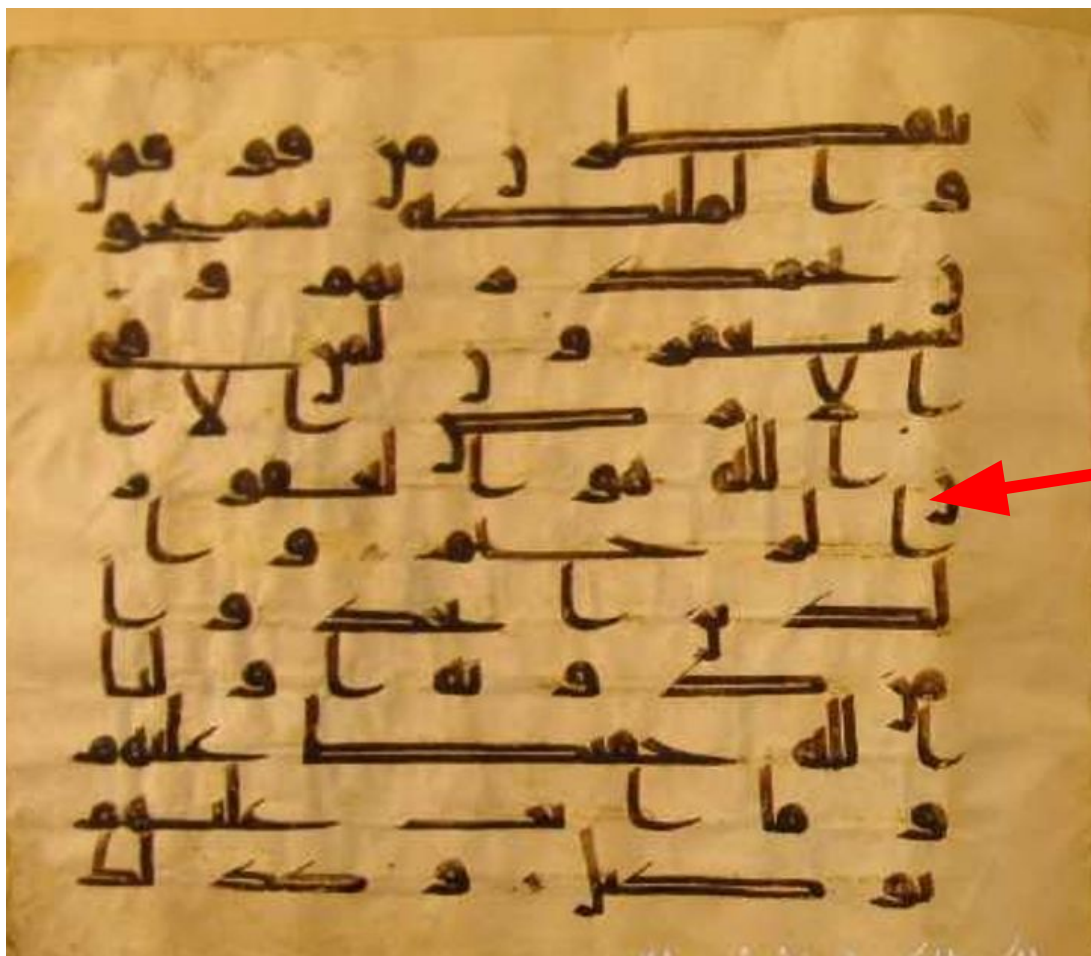 يتفطرن من فوقهن
والملئكة يسبحو
ن بحمد ربهم و
يستغفرون لمن في
الارض الا ا
ن الله هو الغفور
الرحيم وا
لذين اتخذوا
من دونه اوليا
الله حفيظ عليهم
وما انت عليهم
بوكيل وكذلك